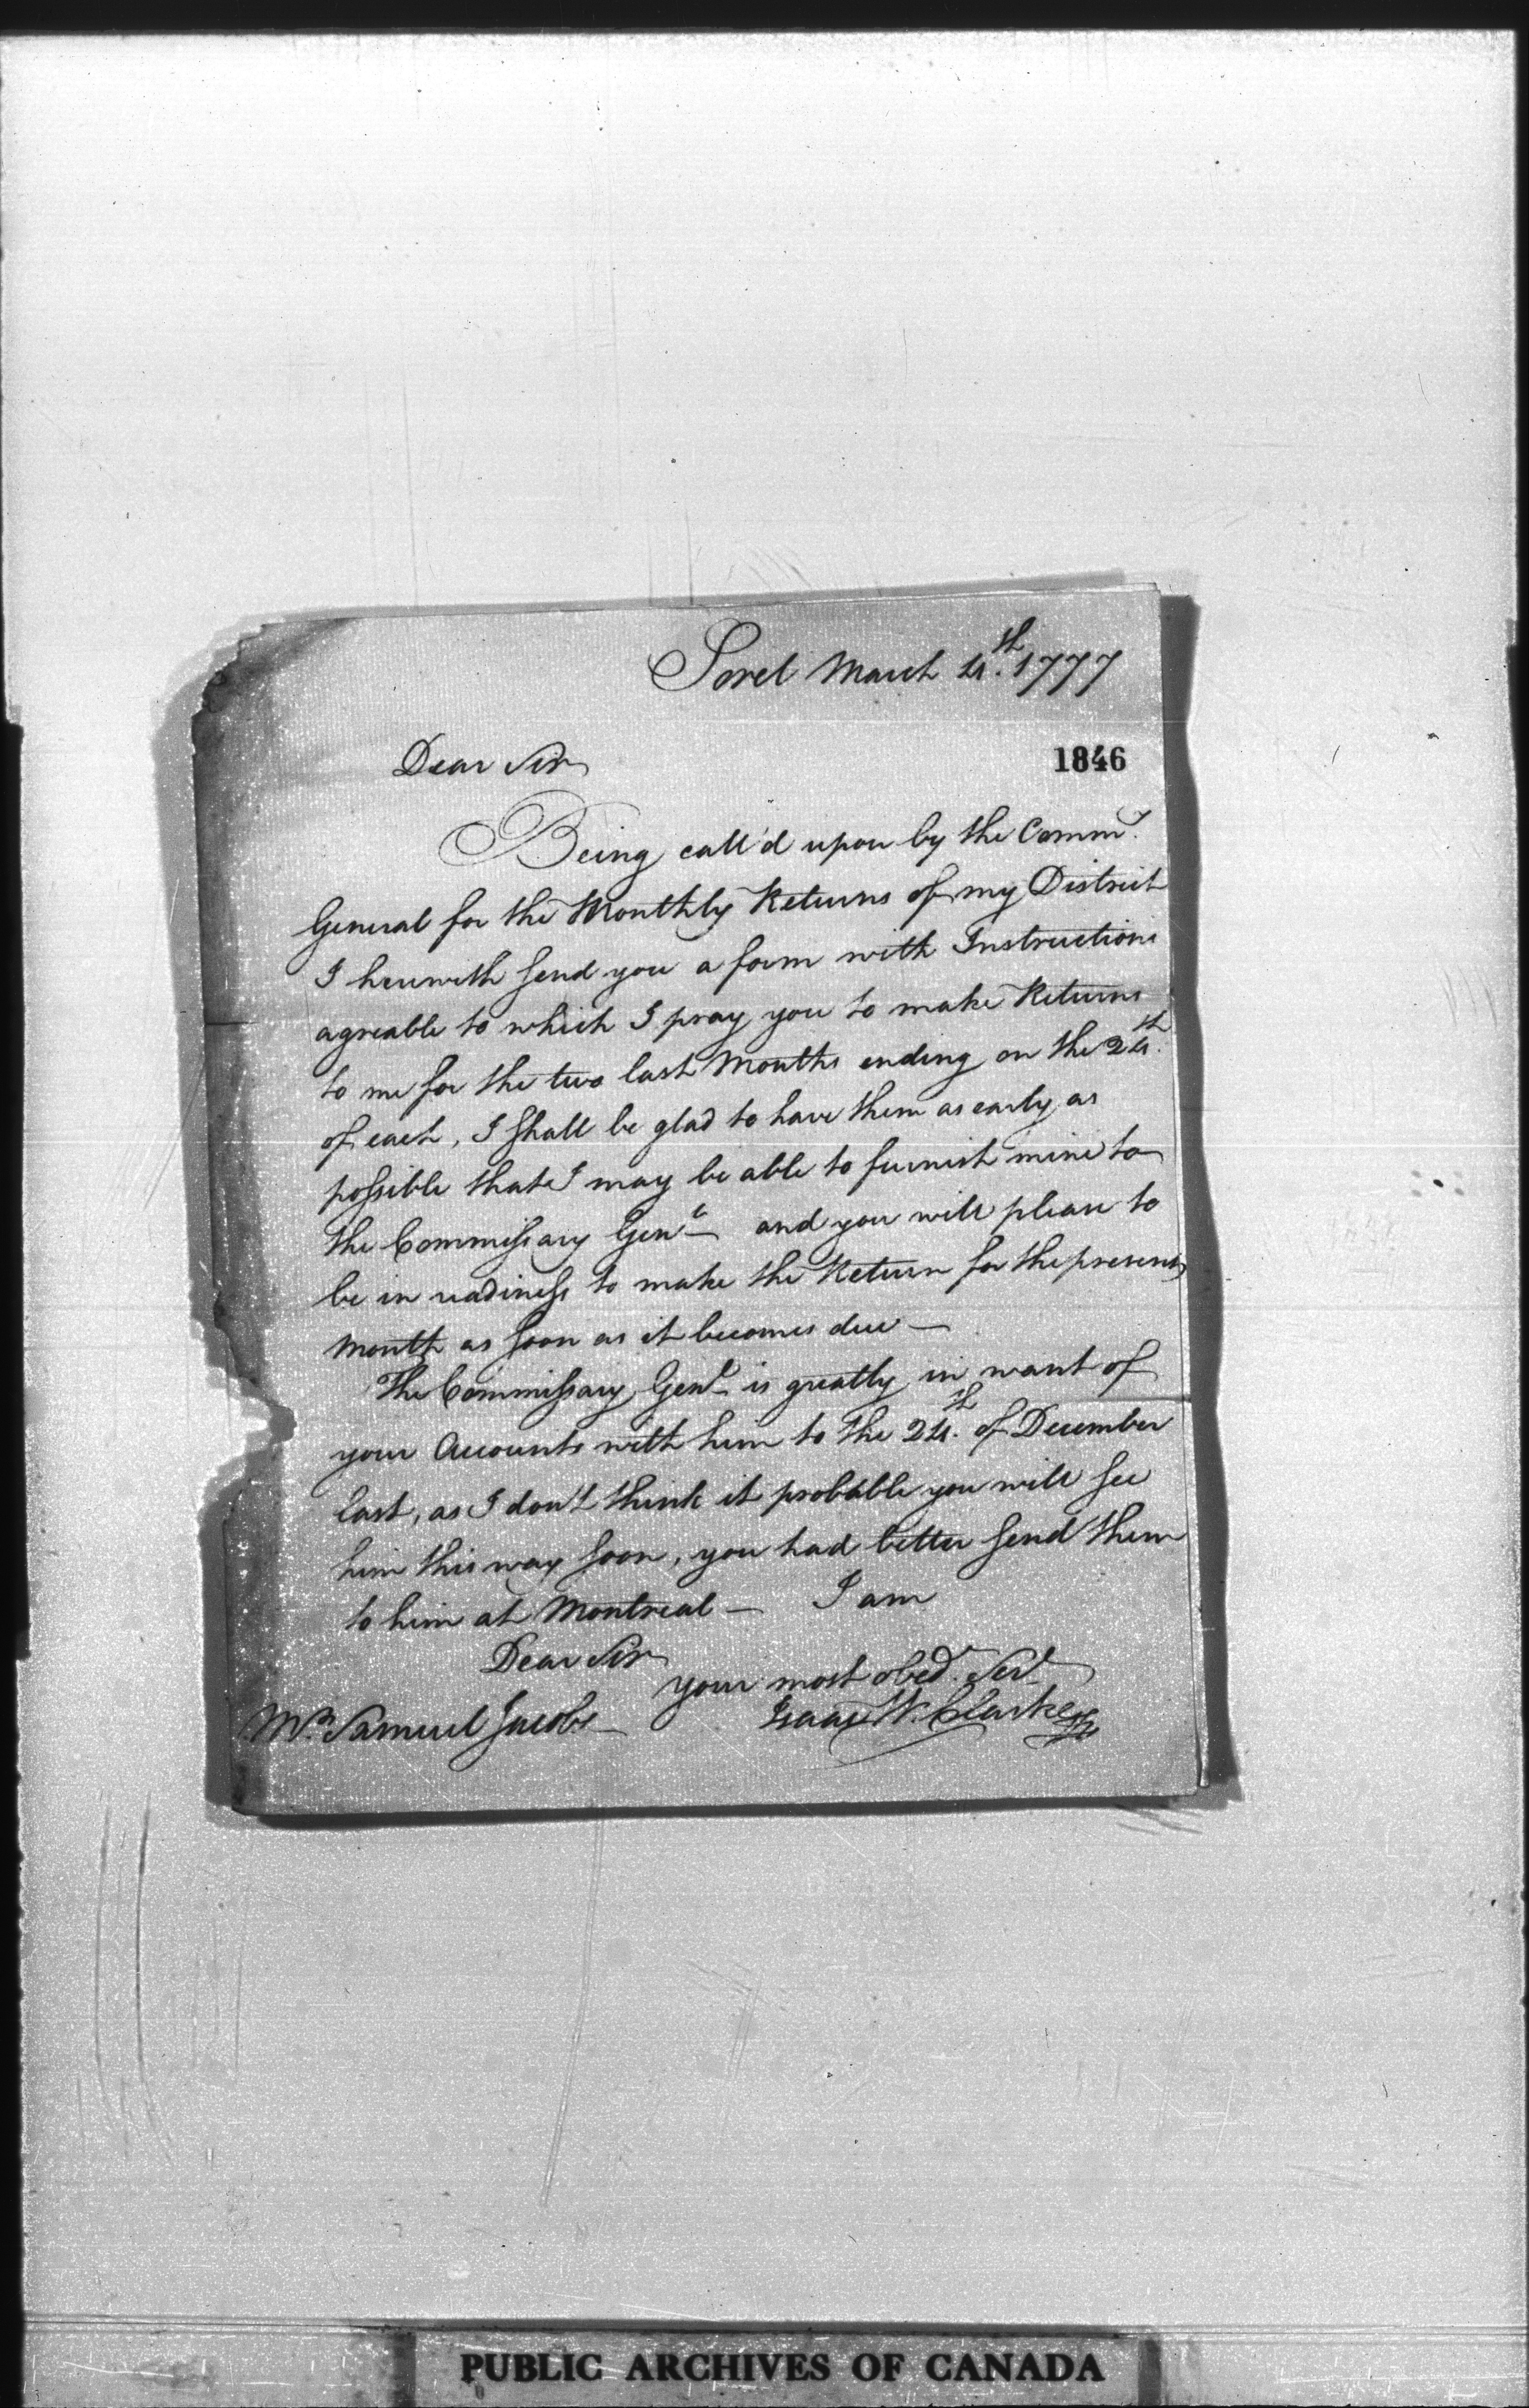 Sorel March 4th. 1777
1846
Dear Sir
Being call'd upon by the Commy.
General for the Monthly Returns of my District
I herewith send you a form with Instructions
agreable to which I pray you to make Returns
to me for the two last Months ending on the 24th.
of each, I shall be glad to have them as early as
possible that I may be able to furnish mine to
the Commissary Genl and you will please to
be in readiness to make the Return for the present
Month as soon as it becomes due —
The Commissary Genl is greatly in want of
your Accounts with him to the 24th. of December
last, as I don't think it probable you will see
him this way soon, you had better send them
to him at Montreal — I am
Dear Sir
your most obedt. Servt
Mr. Samuel Jacobs
Isaac W. Clarke
PUBLIC ARCHIVES OF CANADA